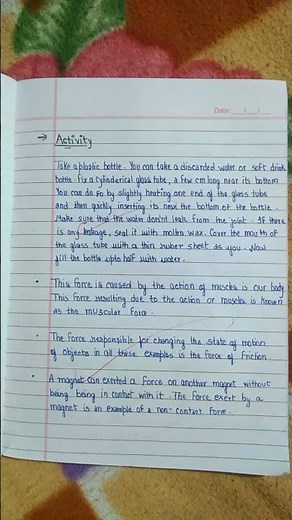 Date __/__/__
→ Activity
Take a plastic bottle. You can take a discarded water or soft drink
bottle. Fix a cylinderical glass tube, a few cm long near its bottom
You can do so by slightly heating one end of the glass tube
and then quickly inserting its near the bottom of the bottle.
Make sure that the water doesn't leak from the joint. If there
is any leakage, seal it with molten wax. Cover the mouth of
the glass tube with a thin ruber sheet as you. Now
fill the bottle upto half with water.
• This force is caused by the action of muscles is our body
This force resulting due to the action or muscles is known
as the muscular force.
• The force responsible for changing the state of motion
of objects in all these examples is the force of friction.
• A magnet can exerted a force on another magnet without
being being in contact with it. The force exert by a
magnet is an example of a non-contact force.